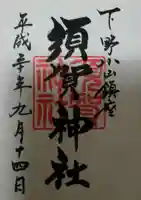 下野小山鎮座
須賀神社
平成年九月十四日